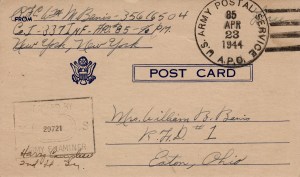 FROM
Pfc Wm M Benis - 35616504
Co. I - 337 INF - APO. 85 - % P.M.
New York, New York
U.S. ARMY POSTAL SERVICE
85
APR
23
1944
A.P.O.
POST CARD
29721
ARMY EXAMINER
Mrs. William B. Benis
R.F.D. #1
Eaton, Ohio
2nd Lt Inf.